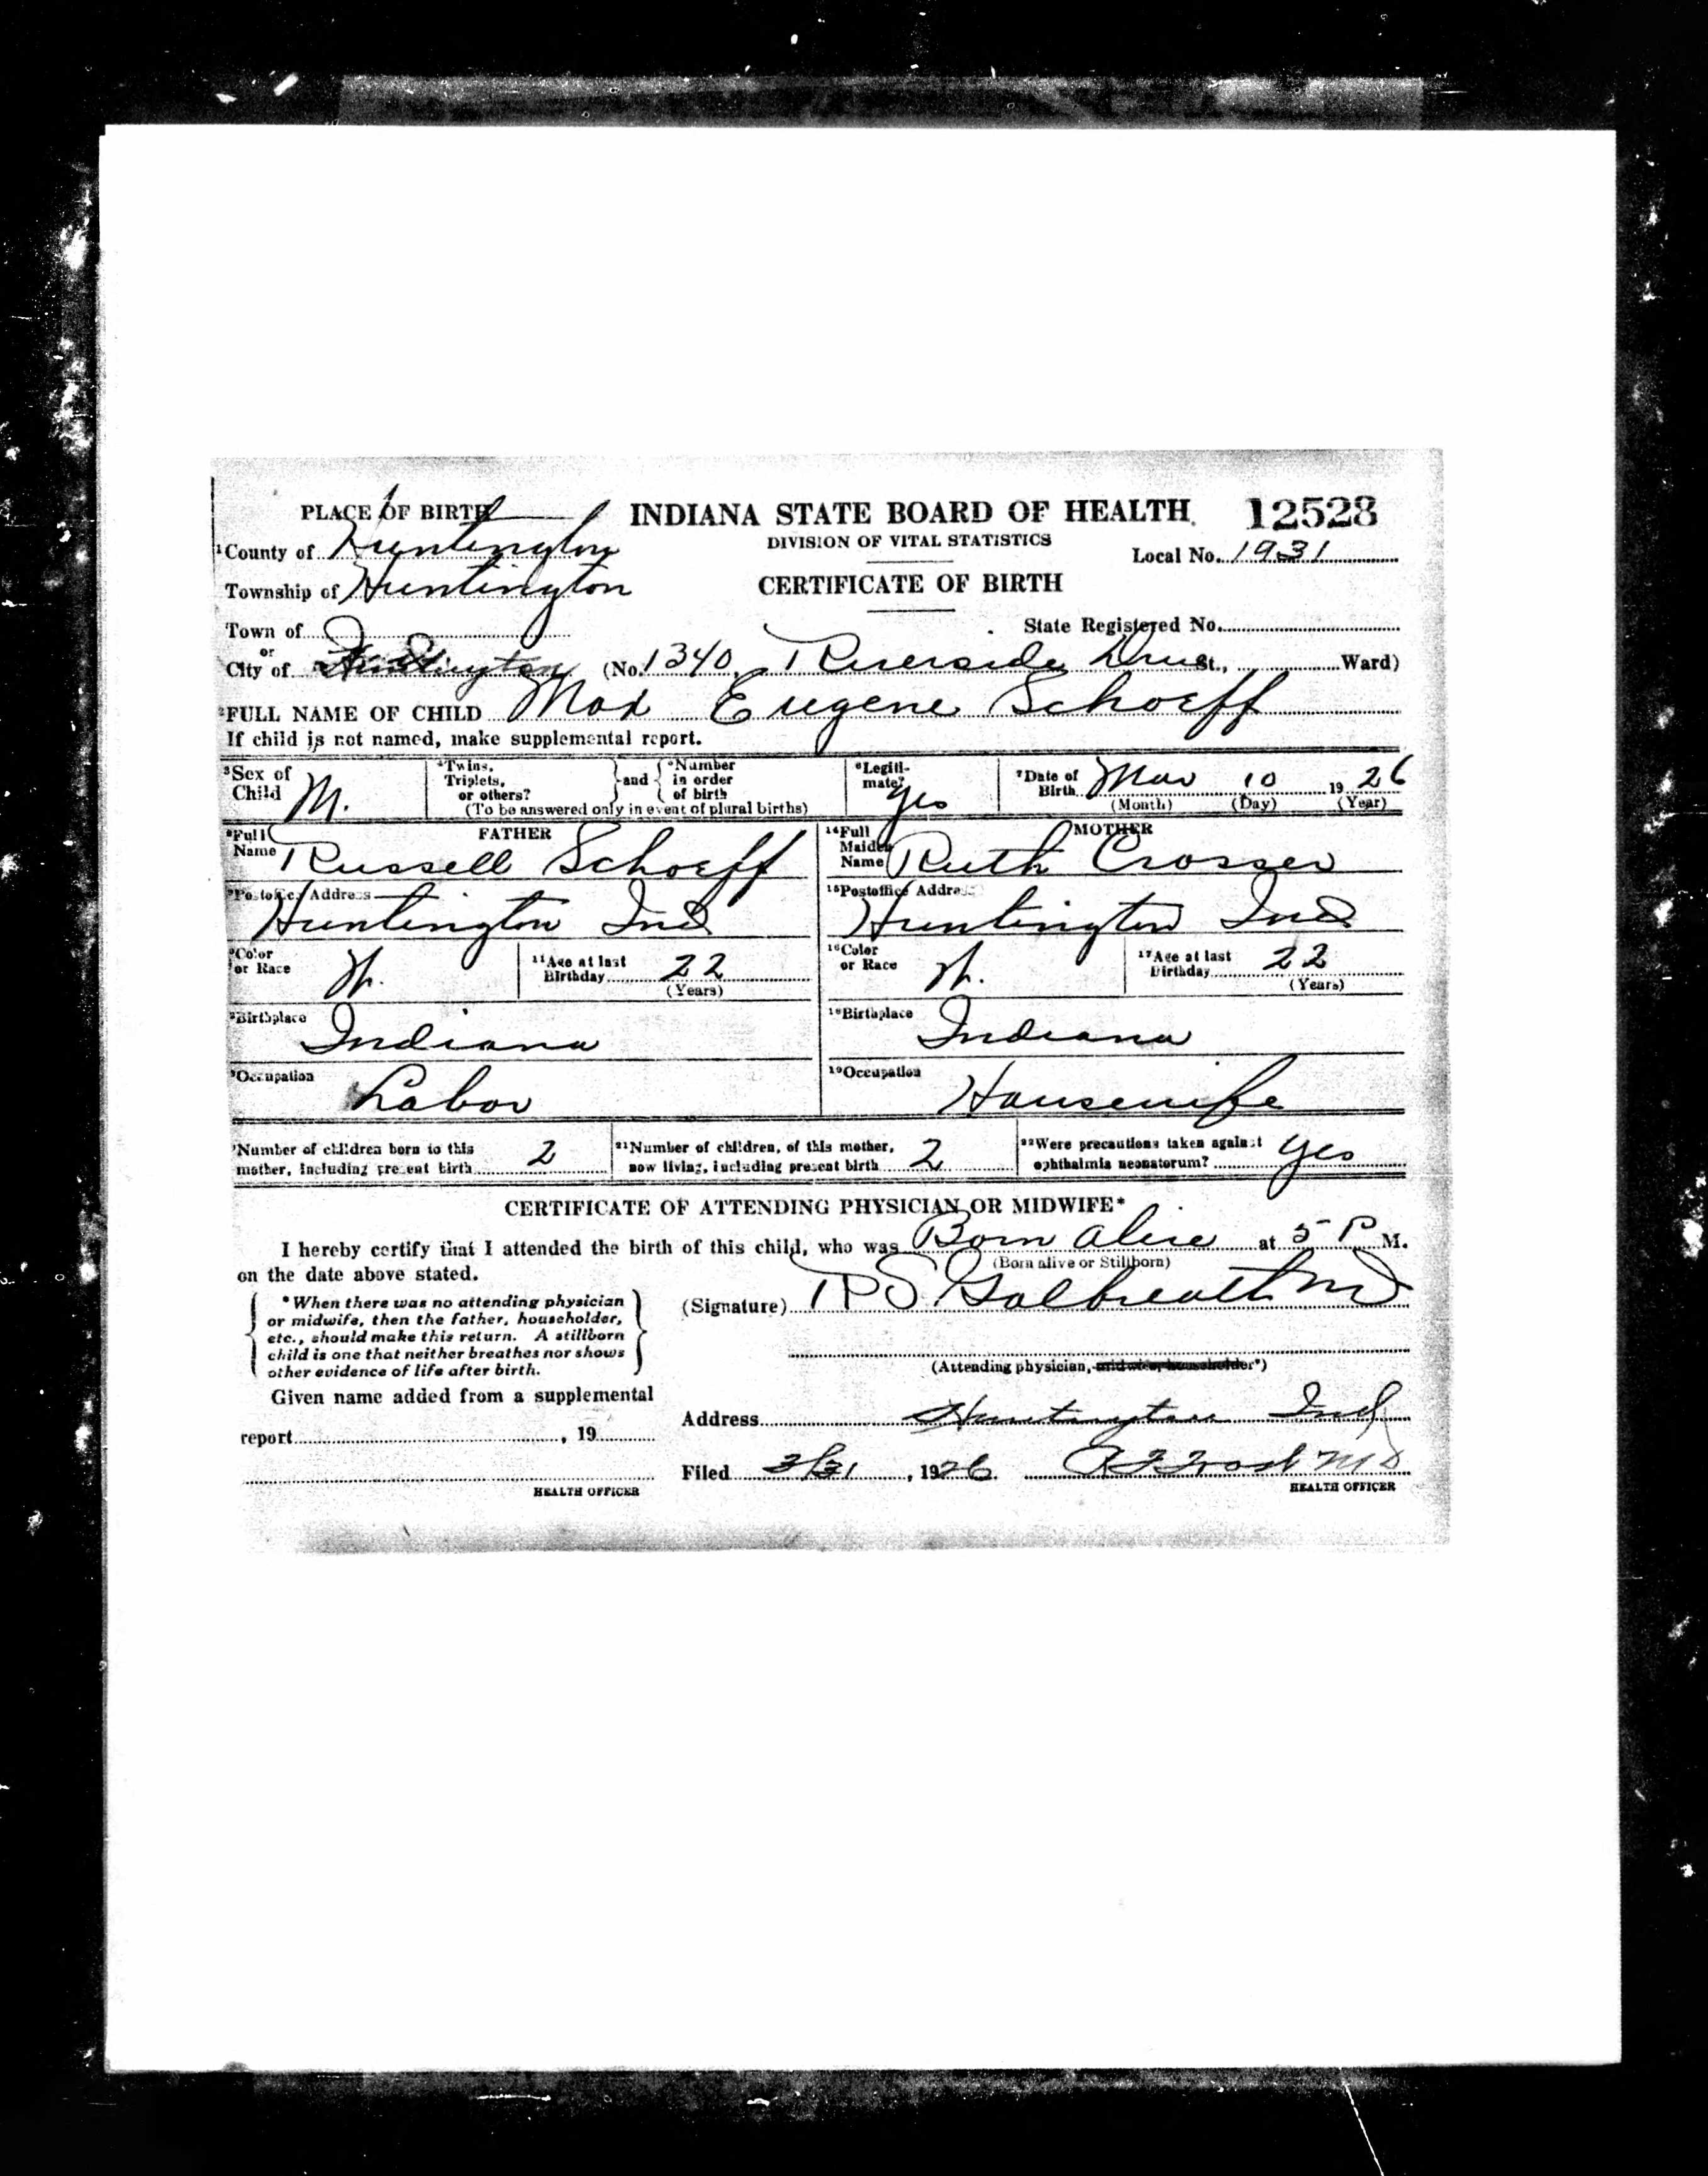 PLACE OF BIRTH
INDIANA STATE BOARD OF HEALTH. 12528
DIVISION OF VITAL STATISTICS
¹County of Huntington
Local No. 1931
Township of Huntington
CERTIFICATE OF BIRTH
Town of
State Registered No.
or
City of Huntington (No. 1340, Riverside Drive St., Ward)
²FULL NAME OF CHILD Max Eugene Schoeff
If child is not named, make supplemental report.
³Sex of Child M.
⁴Twins, Triplets, or others? and ⁵Number in order of birth
(To be answered only in event of plural births)
⁶Legitimate? yes
⁷Date of Birth Mar 10 1926
(Month) (Day) (Year)
FATHER
⁸Full Name Russell Schoeff
MOTHER
¹⁴Full Maiden Name Ruth Crosser
⁹Postoffice Address Huntington Ind
¹⁵Postoffice Address Huntington Ind
Color or Race W.
¹¹Age at last Birthday 22
(Years)
¹⁶Color or Race W.
¹⁷Age at last Birthday 22
(Years)
Birthplace Indiana
¹⁸Birthplace Indiana
Occupation Labor
¹⁹Occupation Housewife
Number of children born to this mother, including present birth 2
²¹Number of children, of this mother, now living, including present birth 2
²²Were precautions taken against ophthalmia neonatorum? yes
CERTIFICATE OF ATTENDING PHYSICIAN OR MIDWIFE*
I hereby certify that I attended the birth of this child, who was Born alive at 5 P M.
(Born alive or Stillborn)
on the date above stated.
*When there was no attending physician
or midwife, then the father, householder,
etc., should make this return. A stillborn
child is one that neither breathes nor shows
other evidence of life after birth.
(Signature) R S Galbreath MD
(Attending physician, midwife, householder*)
Given name added from a supplemental
report , 19
Address Huntington Ind
Filed 3/31, 1926. MD
HEALTH OFFICER
HEALTH OFFICER